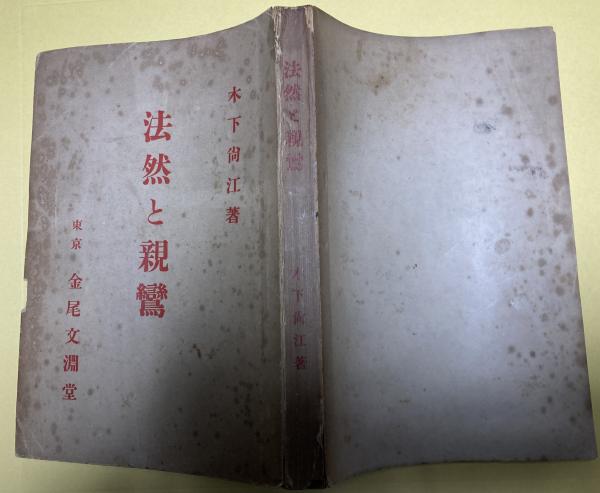 木下尙江著
法然と親鸞
東京 金尾文淵堂
法然と親鸞
木下尙江著